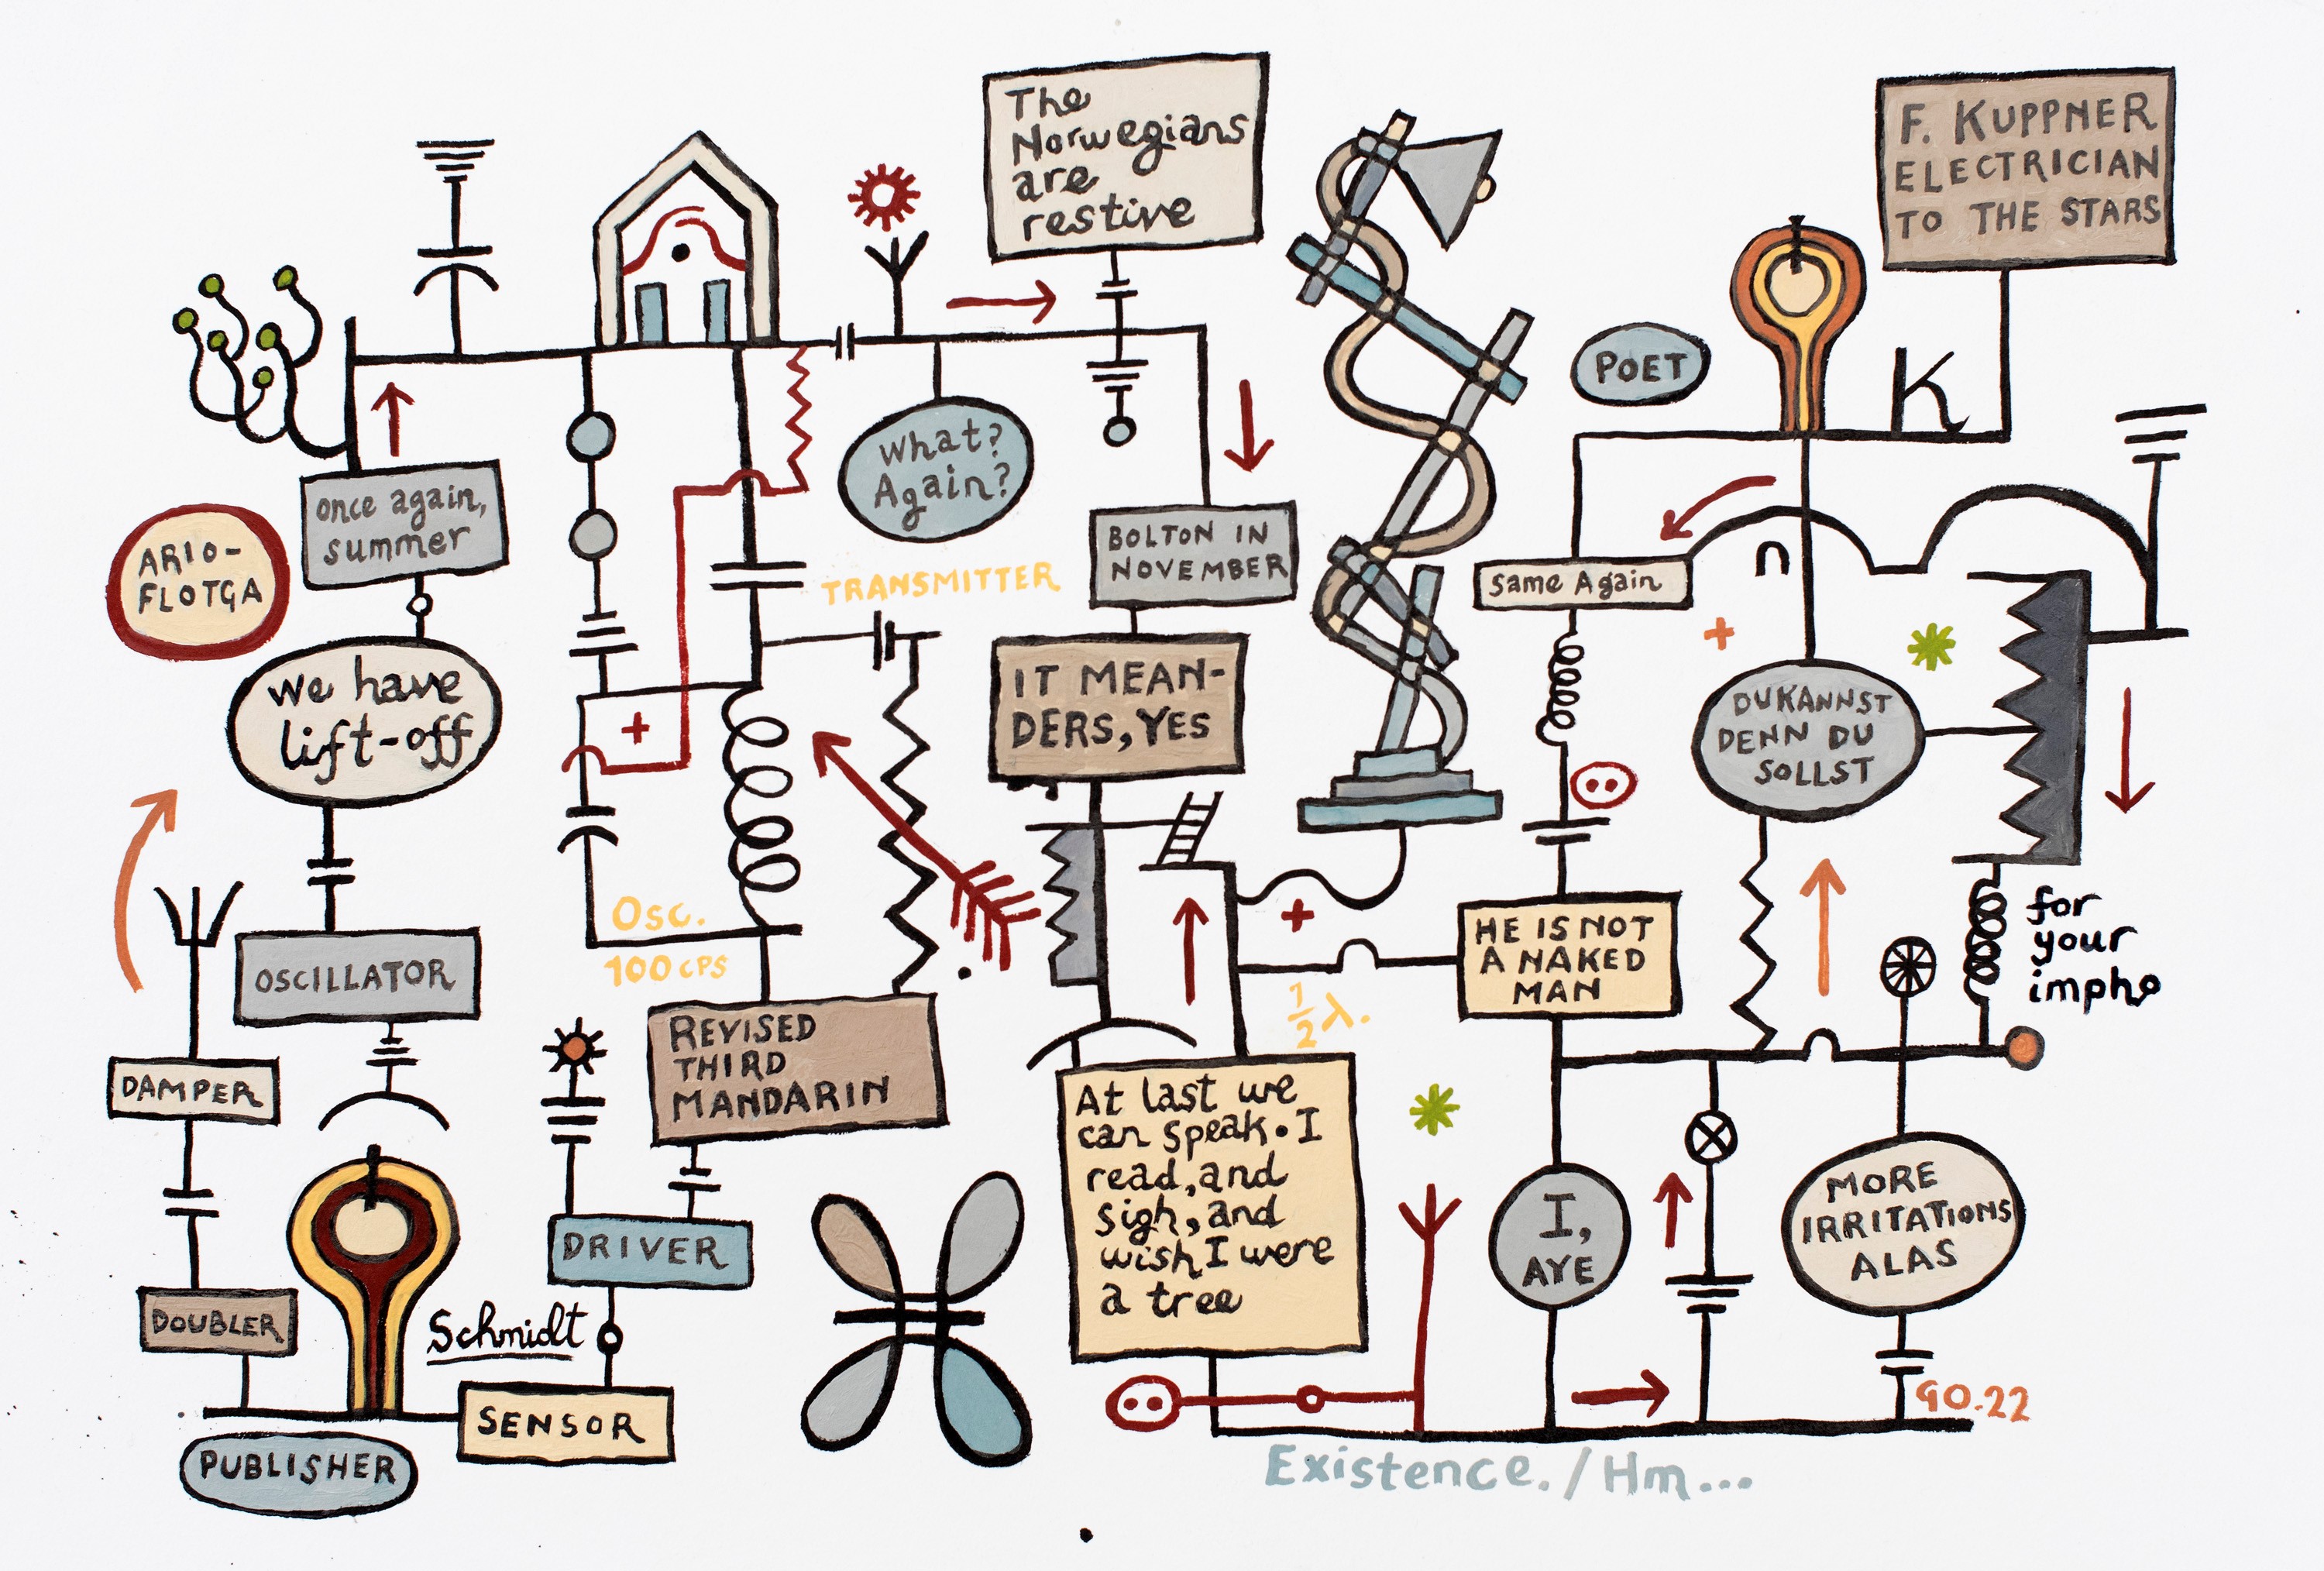 The
Norwegians
are
restive
F. KUPPNER
ELECTRICIAN
TO THE STARS
POET
K
What?
Again?
once again,
summer
ARIO-
FLOTGA
BOLTON IN
NOVEMBER
TRANSMITTER
Same Again
n
we have
lift-off
IT MEAN-
DERS, YES
DU KANNST
DENN DU
SOLLST
OSCILLATOR
Osc.
100 CPS
HE IS NOT
A NAKED
MAN
for
your
impho
1/2 λ.
DAMPER
REVISED
THIRD
MANDARIN
At last we
can speak. I
read, and
sigh, and
wish I were
a tree
I,
AYE
MORE
IRRITATIONS
ALAS
DRIVER
DOUBLER
Schmidt
SENSOR
PUBLISHER
90.22
Existence./Hm...